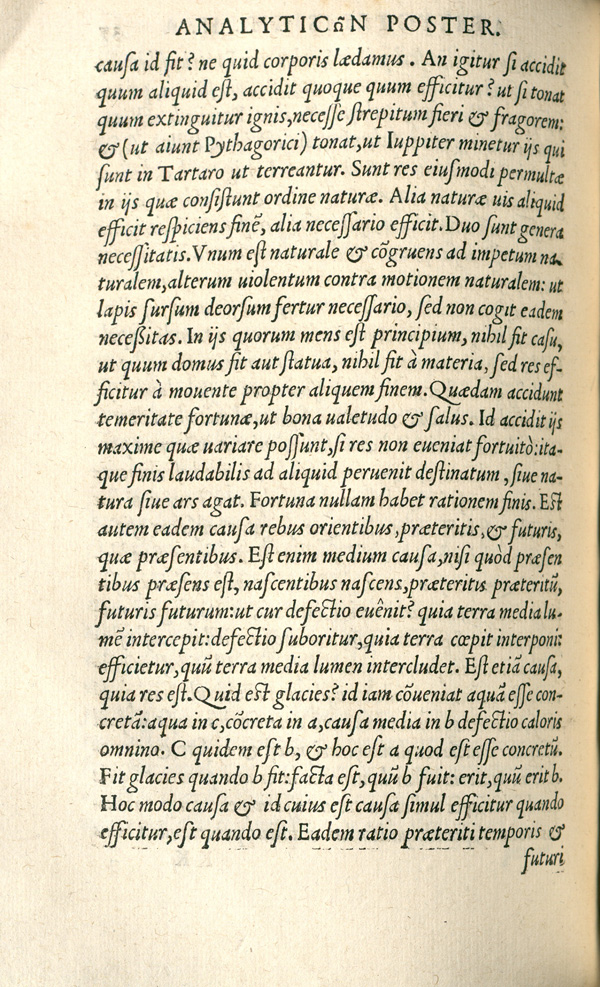 ANALYTICωN POSTER.
causa id fit? ne quid corporis lædamus. An igitur si accidit
quum aliquid est, accidit quoque quum efficitur? ut si tonat
quum extinguitur ignis, necesse strepitum fieri & fragorem:
& (ut aiunt Pythagorici) tonat, ut Iuppiter minetur ijs qui
sunt in Tartaro ut terreantur. Sunt res eiusmodi permultæ
in ijs quæ consistunt ordine naturæ. Alia naturæ uis aliquid
efficit respiciens finẽ, alia necessario efficit. Duo sunt genera
necessitatis. Vnum est naturale & cõgruens ad impetum na-
turalem, alterum uiolentum contra motionem naturalem: ut
lapis sursum deorsum fertur necessario, sed non cogit eadem
neceßitas. In ijs quorum mens est principium, nihil fit casu,
ut quum domus fit aut statua, nihil fit à materia, sed res ef-
ficitur à mouente propter aliquem finem. Quædam accidunt
temeritate fortunæ, ut bona ualetudo & salus. Id accidit ijs
maxime quæ uariare possunt, si res non eueniat fortuitò: ita-
que finis laudabilis ad aliquid peruenit destinatum, siue na-
tura siue ars agat. Fortuna nullam habet rationem finis. Est
autem eadem causa rebus orientibus, præteritis, & futuris,
quæ præsentibus. Est enim medium causa, nisi quòd præsen
tibus præsens est, nascentibus nascens, præteritis præteritũ,
futuris futurum: ut cur defectio euênit? quia terra media lu-
mẽ intercepit: defectio suboritur, quia terra cœpit interponi:
efficietur, quũ terra media lumen intercludet. Est etiã causa,
quia res est. Quid est glacies? id iam cõueniat aquã esse con-
cretã: aqua in c, cõcreta in a, causa media in b defectio caloris
omnino. C quidem est b, & hoc est a quod est esse concretũ.
Fit glacies quando b fit: facta est, quũ b fuit: erit, quũ erit b.
Hoc modo causa & id cuius est causa simul efficitur quando
efficitur, est quando est. Eadem ratio præteriti temporis &
futuri